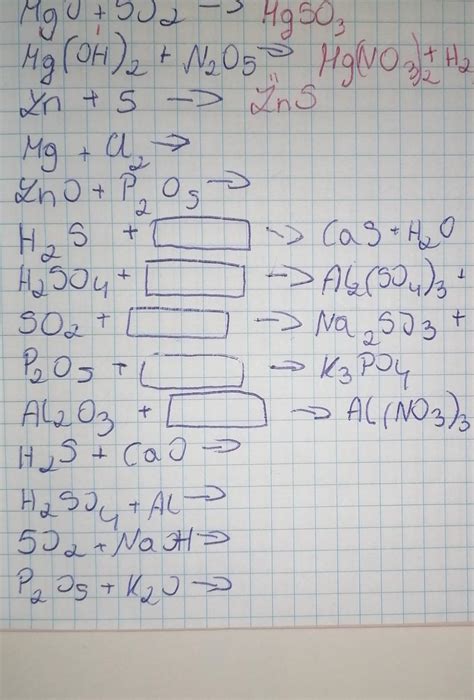 MgO + SO2 → MgSO3
Mg(OH)2 + N2O5 → Mg(NO3)2 + H2
Zn + S → ZnS
Mg + Cl2 →
ZnO + P2O5 →
H2S + → CaS + H2O
H2SO4 + → Al2(SO4)3 +
SO2 + → Na2SO3 +
P2O5 + → K3PO4
Al2O3 + → Al(NO3)3
H2S + CaO →
H2SO4 + Al →
SO2 + NaOH →
P2O5 + K2O →